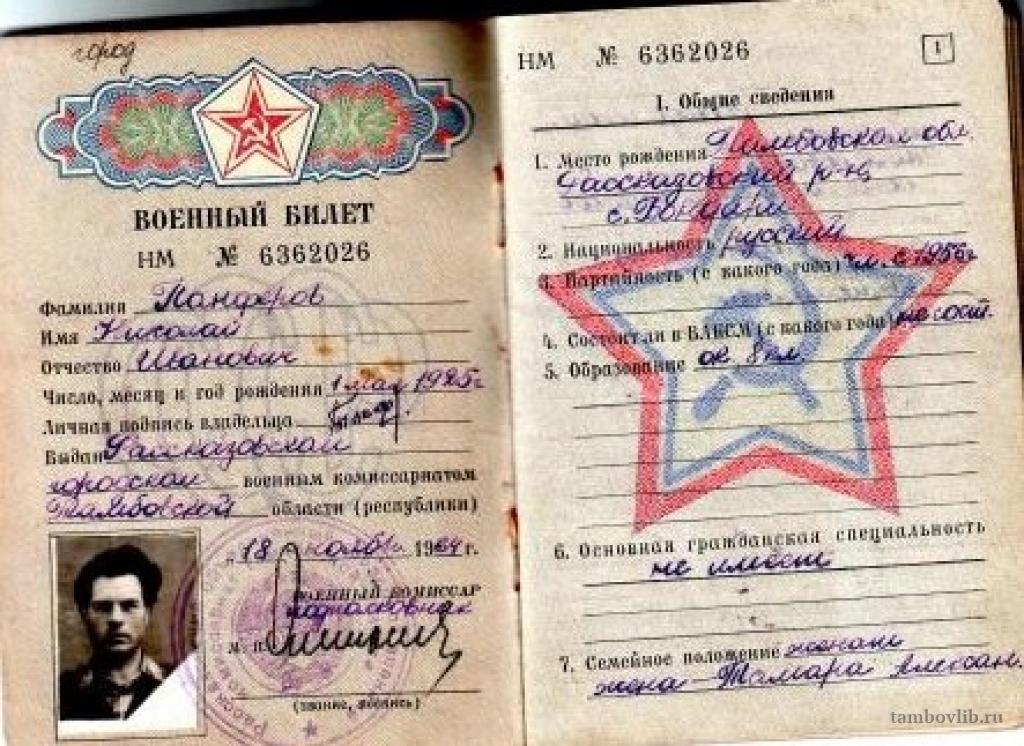 город
ВОЕННЫЙ БИЛЕТ
НМ № 6362026
Фамилия Панферов
Имя Николай
Отчество Иванович
Число, месяц и год рождения 1 мая 1925г
Личная подпись владельца
Выдан Рассказовским
городским военным комиссариатом
Тамбовской области (республики)
„18 ноября 1964 г.
ВОЕННЫЙ КОМИССАР
подполковник
М. П.
(звание, подпись)
НМ № 6362026
1
I. Общие сведения
1. Место рождения Тамбовская обл.
Рассказовский р-н,
с.
2. Национальность русский
3. Партийность (с какого года) чл. с 1956г
4. Состоит ли в ВЛКСМ (с какого года) не сост.
5. Образование 8 кл
6. Основная гражданская специальность
не имеет
7. Семейное положение женат
жена - Тамара Алексан.
tambovlib.ru